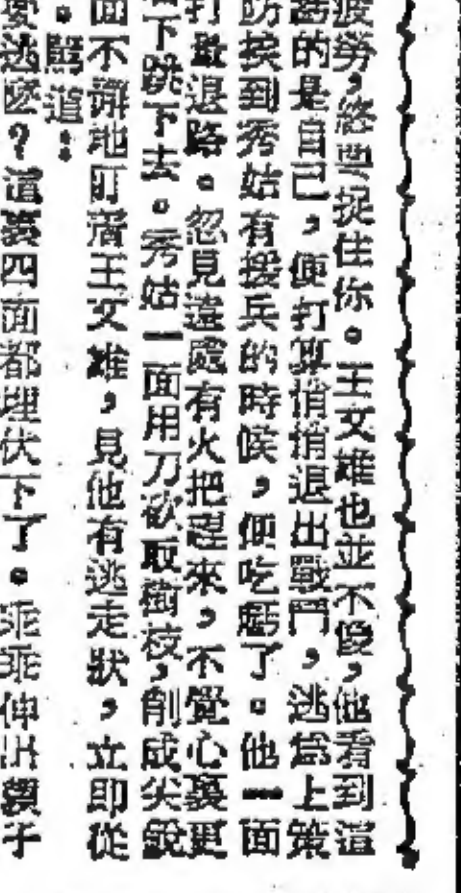 疲勞，終要捉住你。王文雄也並不傻，他看到這
的是自己，便打算悄悄退出戰鬥，逃爲上策
防挨到秀姑有援兵的時候，便吃虧了。他一面
打量退路。忽見遠處有火把趕來，不覺心裏更
下跳下去。秀姑一面用刀砍取樹枝，削成尖銳
面不辭地盯着王文雄，見他有逃走狀，立即從
。罵道：
逃麽？這裏四面都埋伏下了。乖乖伸出頸子